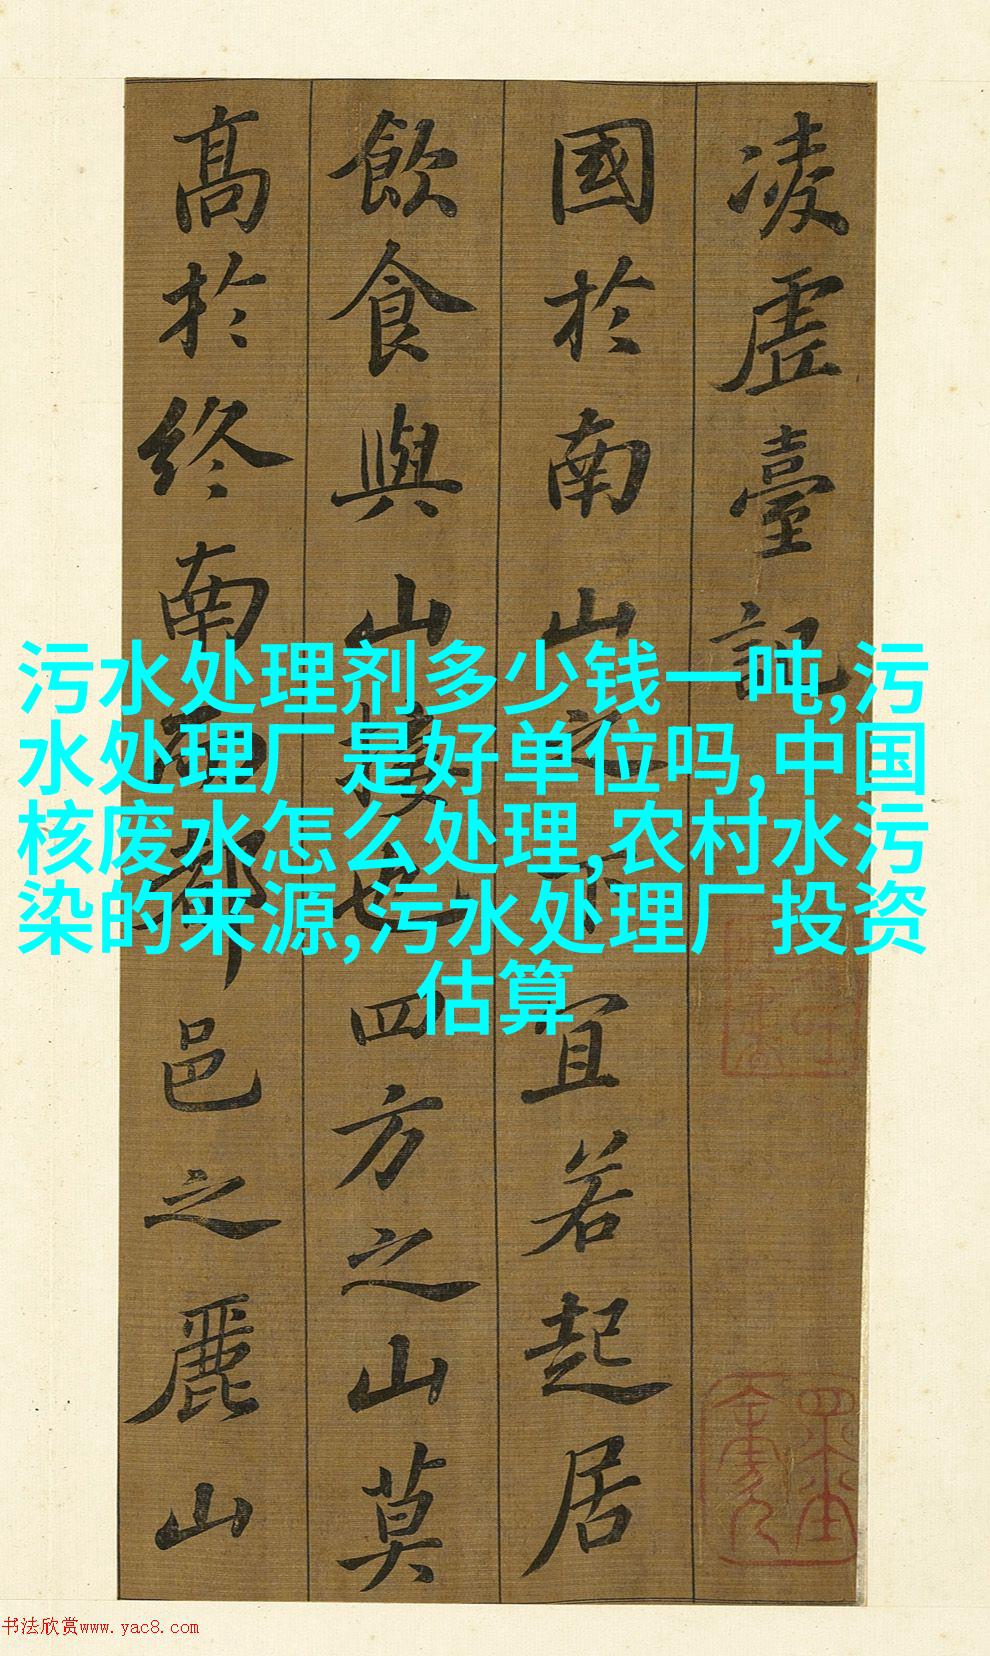 凌虛臺記
國於南山之下宜若起居
飲食與山接也四方之山莫
高於終南而都邑之麗山
污水处理剂多少钱一吨,污
水处理厂是好单位吗,中国
核废水怎么处理,农村水污
染的来源,污水处理厂投资
估算
书法欣赏www.yac8.com